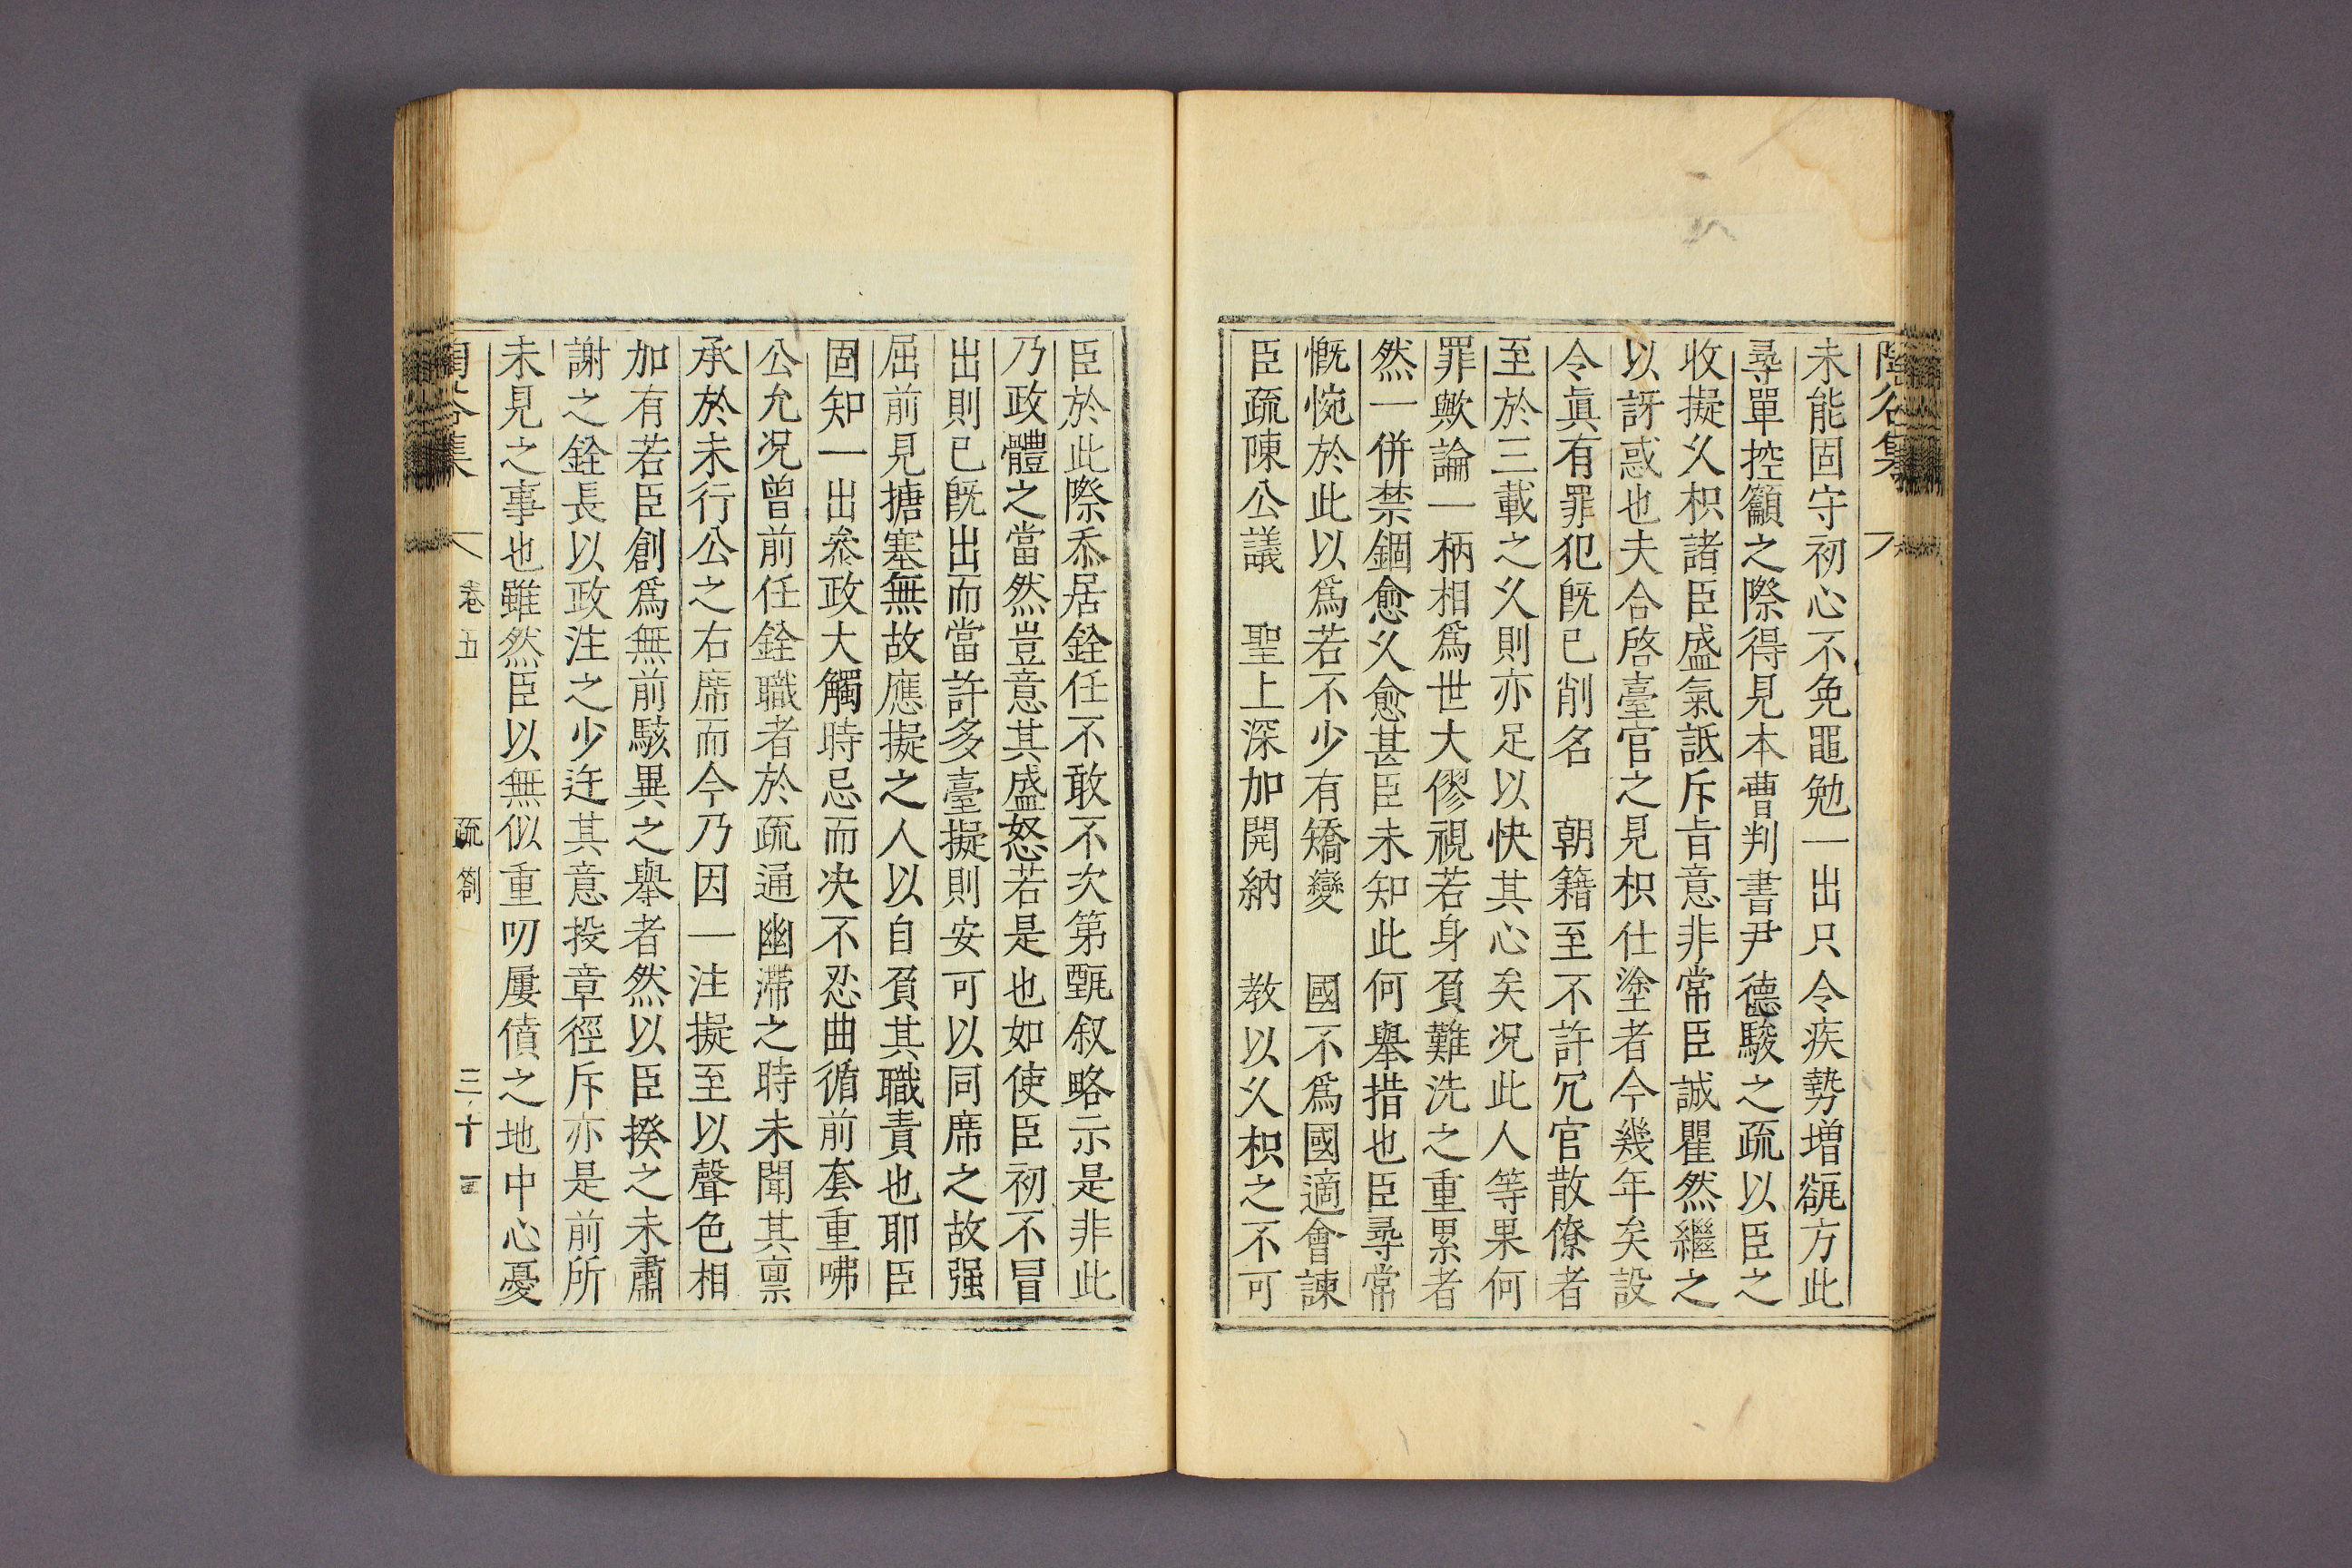 陶谷集
未能固守初心不免黽勉一出只令疾勢增㞃方此
尋單控籲之際得見本曹判書尹德駿之疏以臣之
收擬久枳諸臣盛氣詆斥㫖意非常臣誠瞿然繼之
以訝惑也夫合啓臺官之見枳仕塗者今幾年矣設
令眞有罪犯旣已削名 朝籍至不許冗官散僚者
至於三載之久則亦足以快其心矣况此人等果何
罪歟論一柄相爲世大僇視若身負難洗之重累者
然一併禁錮愈久愈甚臣未知此何擧措也臣尋常
慨惋於此以爲若不少有矯變 國不爲國適會諫
臣疏陳公議 聖上深加開納 敎以久枳之不可
臣於此際忝居銓任不敢不次第甄叙略示是非此
乃政體之當然豈意其盛怒若是也如使臣初不冒
出則已旣出而當許多臺擬則安可以同席之故强
屈前見搪塞無故應擬之人以自負其職責也耶臣
固知一出叅政大觸時忌而决不忍曲循前套重咈
公允况曾前任銓職者於疏通幽滯之時未聞其禀
承於未行公之右席而今乃因一注擬至以聲色相
加有若臣創爲無前駭異之擧者然以臣揆之未肅
謝之銓長以政注之少迕其意投章徑斥亦是前所
未見之事也雖然臣以無似重叨屢僨之地中心憂
陶谷集 卷五 疏箚 三十